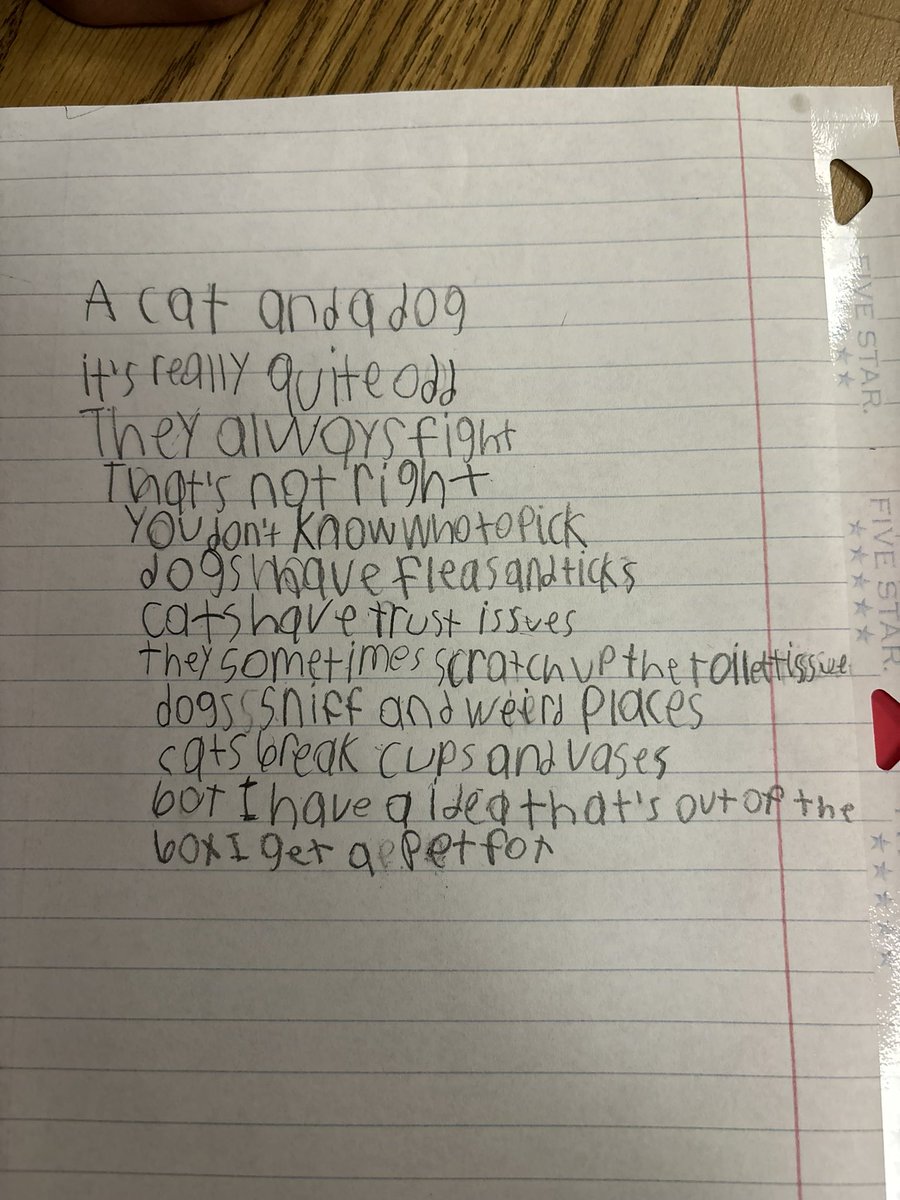 A cat and a dog
it's really quite odd
They always fight
That's not right
you don't know who to pick
dogs have fleas and ticks
cats have trust issues
they sometimes scratch up the toilet tissue
dogs sniff and weird places
cats break cups and vases
bot I have a idea that's out of the
box I get a pet fox
FIVE STAR.
FIVE STAR.